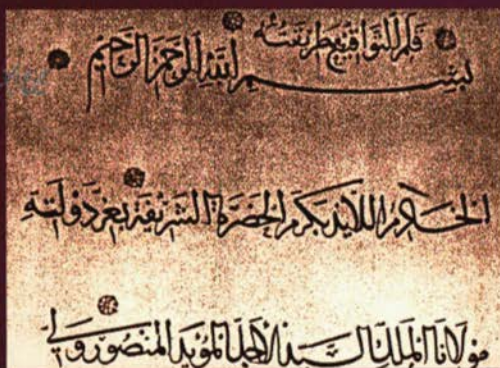 قلم التواقيع طريقته
بسم الله الرحمن الرحيم
الخادم اللايذ بكرم الحضرة الشريفة بعز دولته
مولانا الملك السيد الاجل المؤيد المنصور ولي